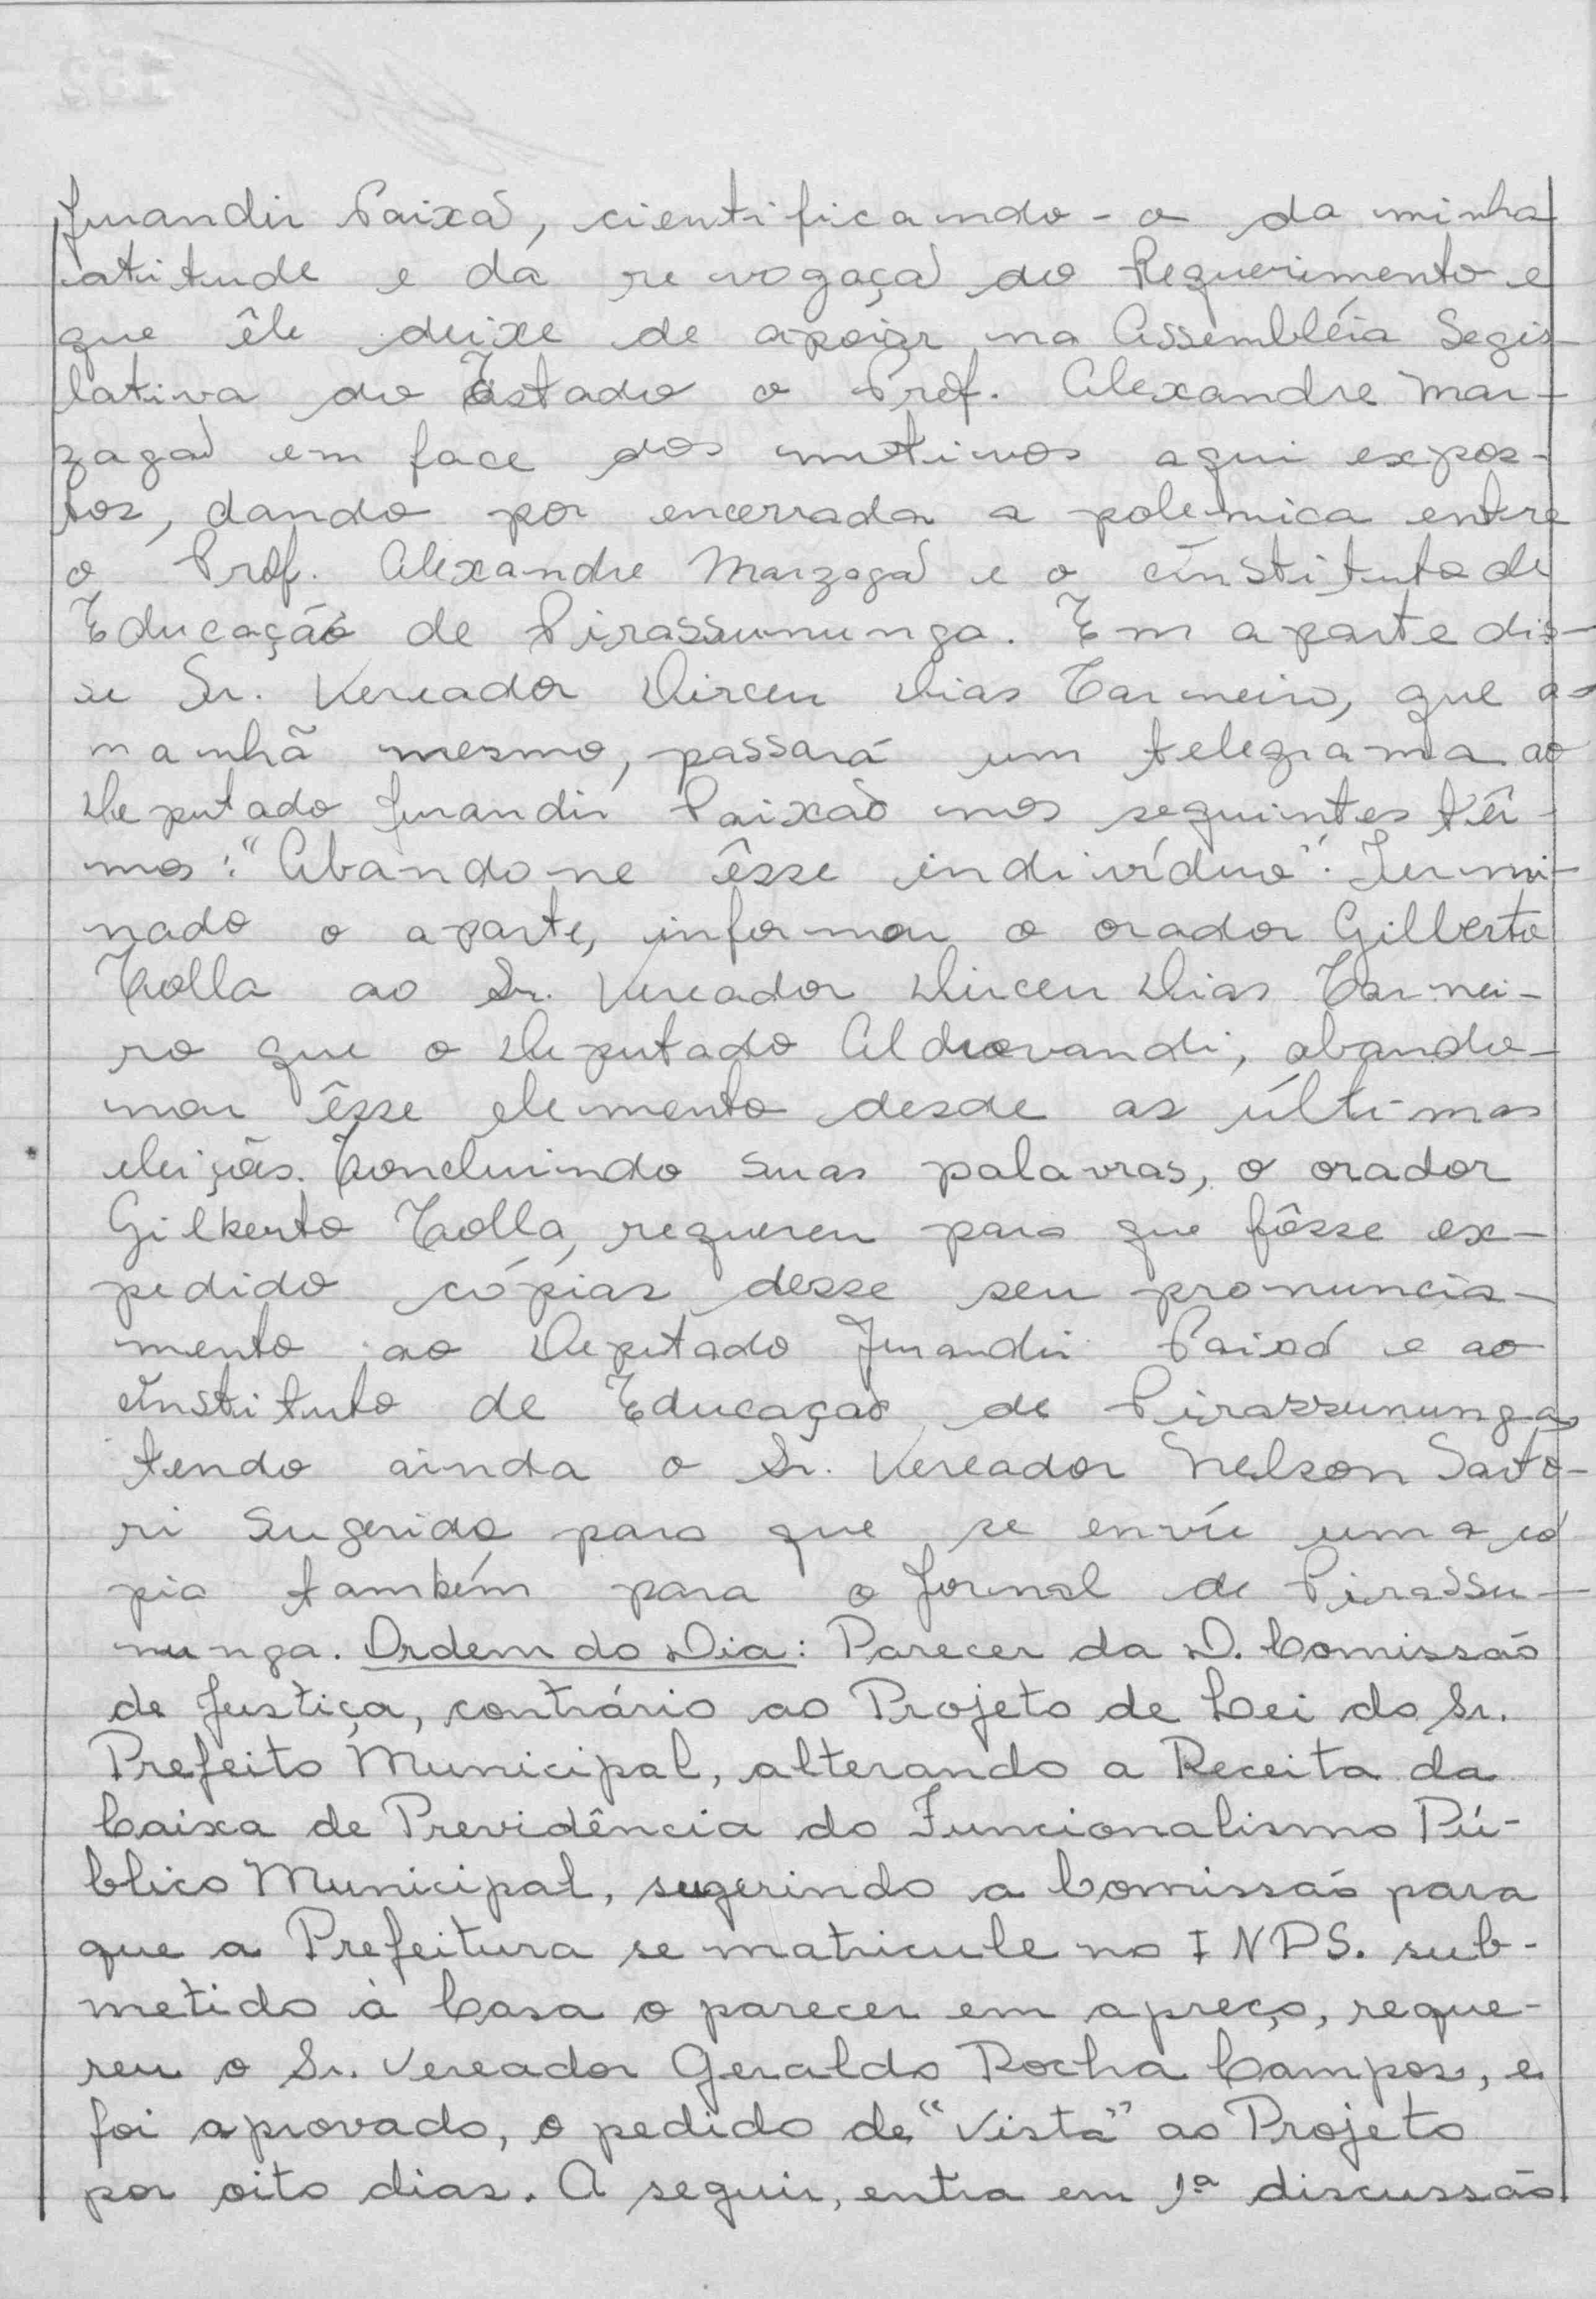 Jurandir Paixão, cientificando-o da minha
atitude e da revogação do Requerimento e
que êle deixe de apoiar na Assembléia Legis-
lativa do Estado o Prof. Alexandre Mar-
zagão em face dos motivos aqui expos-
tos, dando por encerrada a polemica entre
o Prof. Alexandre Marzagão e o Instituto de
Educação de Pirassununga. Em aparte dis-
se Sr. Vereador Dirceu Dias Carneiro, que a-
manhã mesmo, passará um telegrama ao
Deputado Jurandir Paixão nos seguintes têr-
mos: "Abandone êsse indivíduo". Termi-
nado o aparte, informou o orador Gilberto
Colla ao Sr. Vereador Dirceu Dias Carnei-
ro que o Deputado Aldrovandi, abando-
nou êsse elemento desde as últimas
eleições. Concluindo suas palavras, o orador
Gilberto Colla, requereu para que fôsse ex-
pedido cópias desse seu pronuncia-
mento ao Deputado Jurandir Paixão e ao
Instituto de Educação de Pirassununga,
tendo ainda o Sr. Vereador Nelson Sarto-
ri sugerido para que se envíe uma có
pia também para o Jornal de Pirassu-
nunga. Ordem do Dia: Parecer da D. Comissão
de Justiça, contrário ao Projeto de Lei do Sr.
Prefeito Municipal, alterando a Receita da
Caixa de Previdência do Funcionalismo Pú-
blico Municipal, sugerindo a Comissão para
que a Prefeitura se matricule no INPS. sub-
metido à Casa o parecer em apreço, reque-
reu o Sr. Vereador Geraldo Rocha Campos, e
foi aprovado, o pedido de "Vista" ao Projeto
por oito dias. A seguir, entra em 1ª discussão